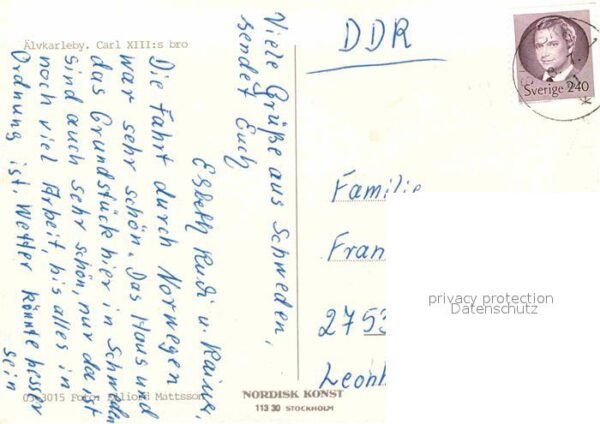 Älvkarleby. Carl XIII:s bro
Viele Grüße aus Schweden,
sendet Euch
Elsbeth Rudi u. Rainer,
Die Fahrt durch Norwegen
war sehr schön. Das Haus und
das Grundstück hier in Schweden
sind auch sehr schön, nur da ist
noch viel Arbeit, bis alles in
Ordnung ist. Wetter könnte besser
sein
DDR
Sverige 240
Familie
Fran
2753
Leonh
privacy protection
Datenschutz
Foto: Mattsson
NORDISK KONST
113 30 STOCKHOLM